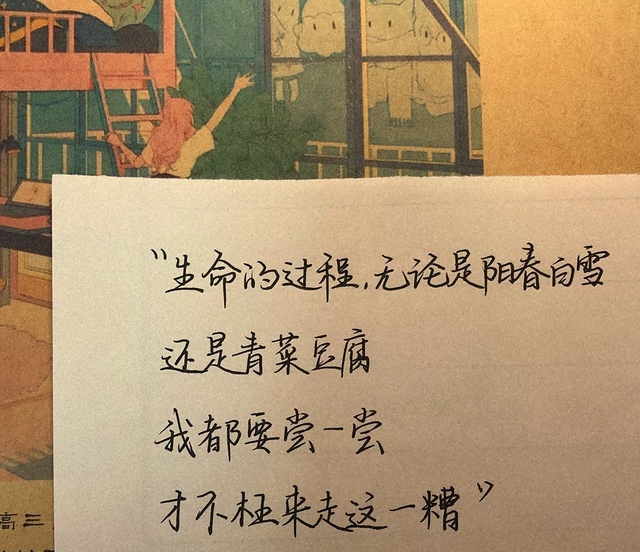 "生命的过程,无论是阳春白雪
还是青菜豆腐
我都要尝一尝
才不枉来走这一糟"
高三